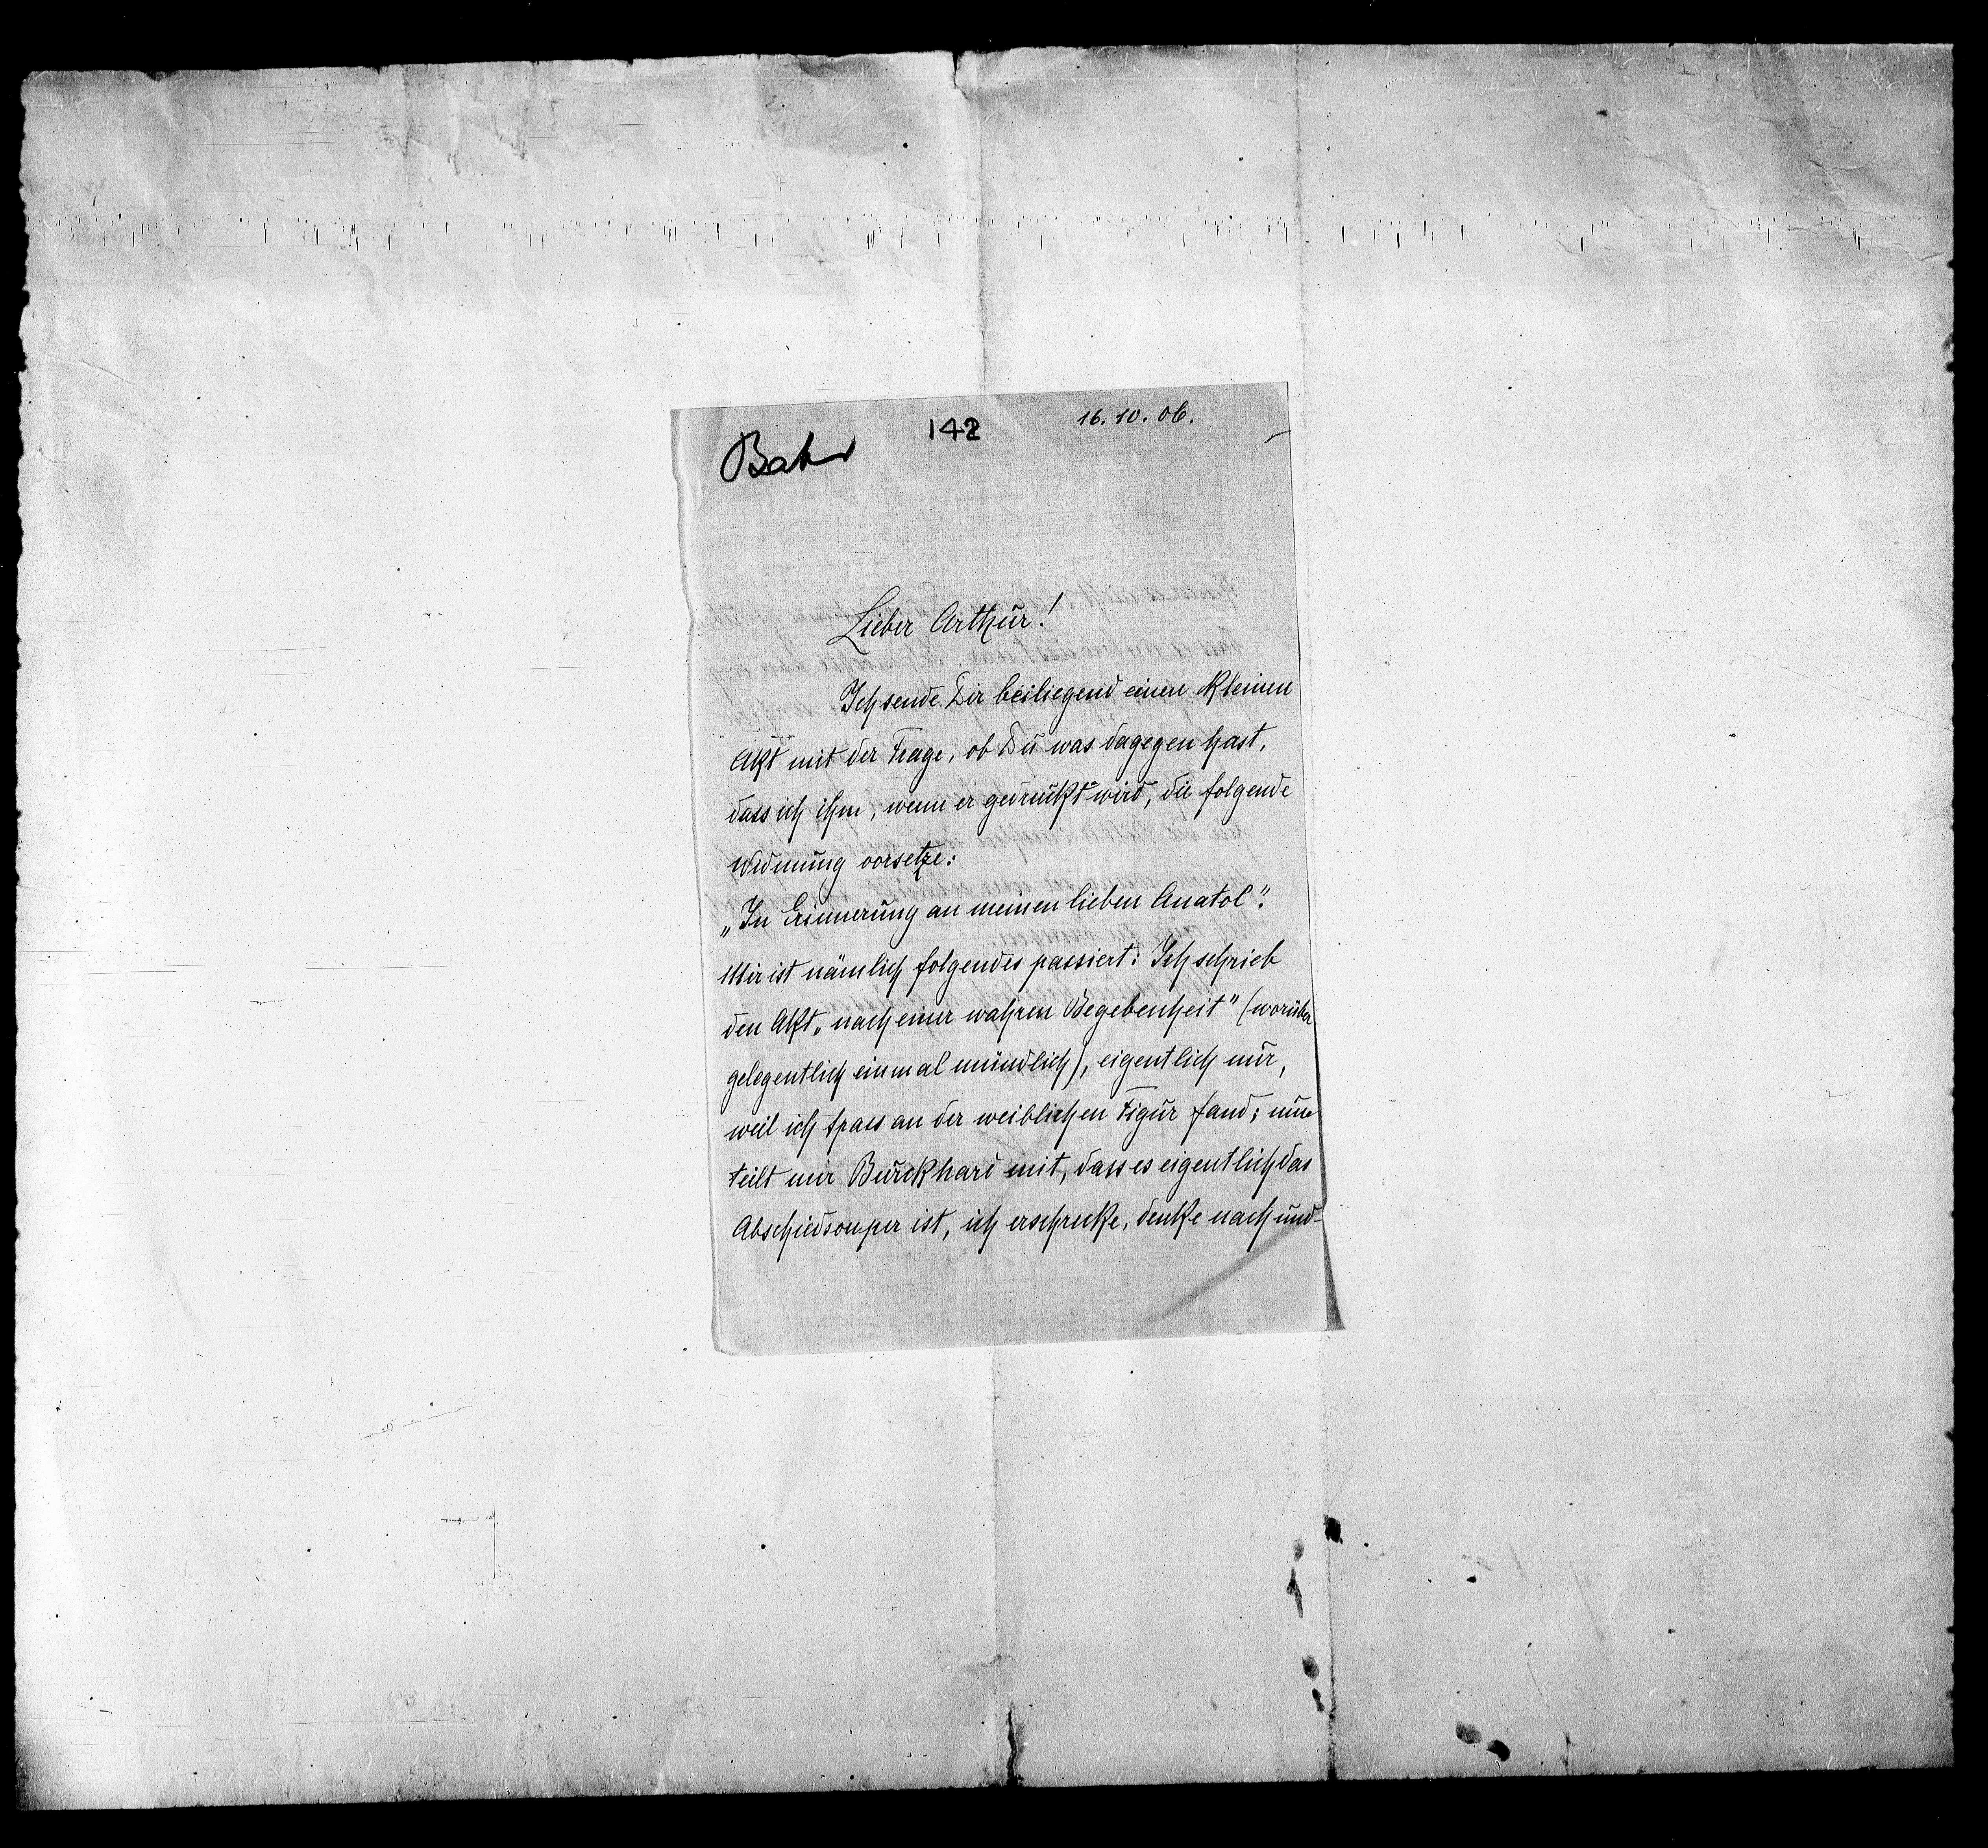 142
16. 10. 06.
Bahr
Lieber Arthur!
Ich sende Dir beiliegend einen kleinen
Akt mit der Frage, ob Du was dagegen hast,
dass ich ihm, wenn er gedruckt wird, die folgende
Widmung vorsetze:
„In Erinnerung an meinen lieben Anatol“.
Mir ist nämlich folgendes passiert: Ich schrieb
den Akt „nach einer wahren Begebenheit“ (worüber
gelegentlich einmal mündlich), eigentlich nur,
weil ich Spass an der weiblichen Figur fand; nun
teilt mir Burckhard mit, dass es eigentlich das
Abschiedsouper ist, ich erschrecke, denke nach und